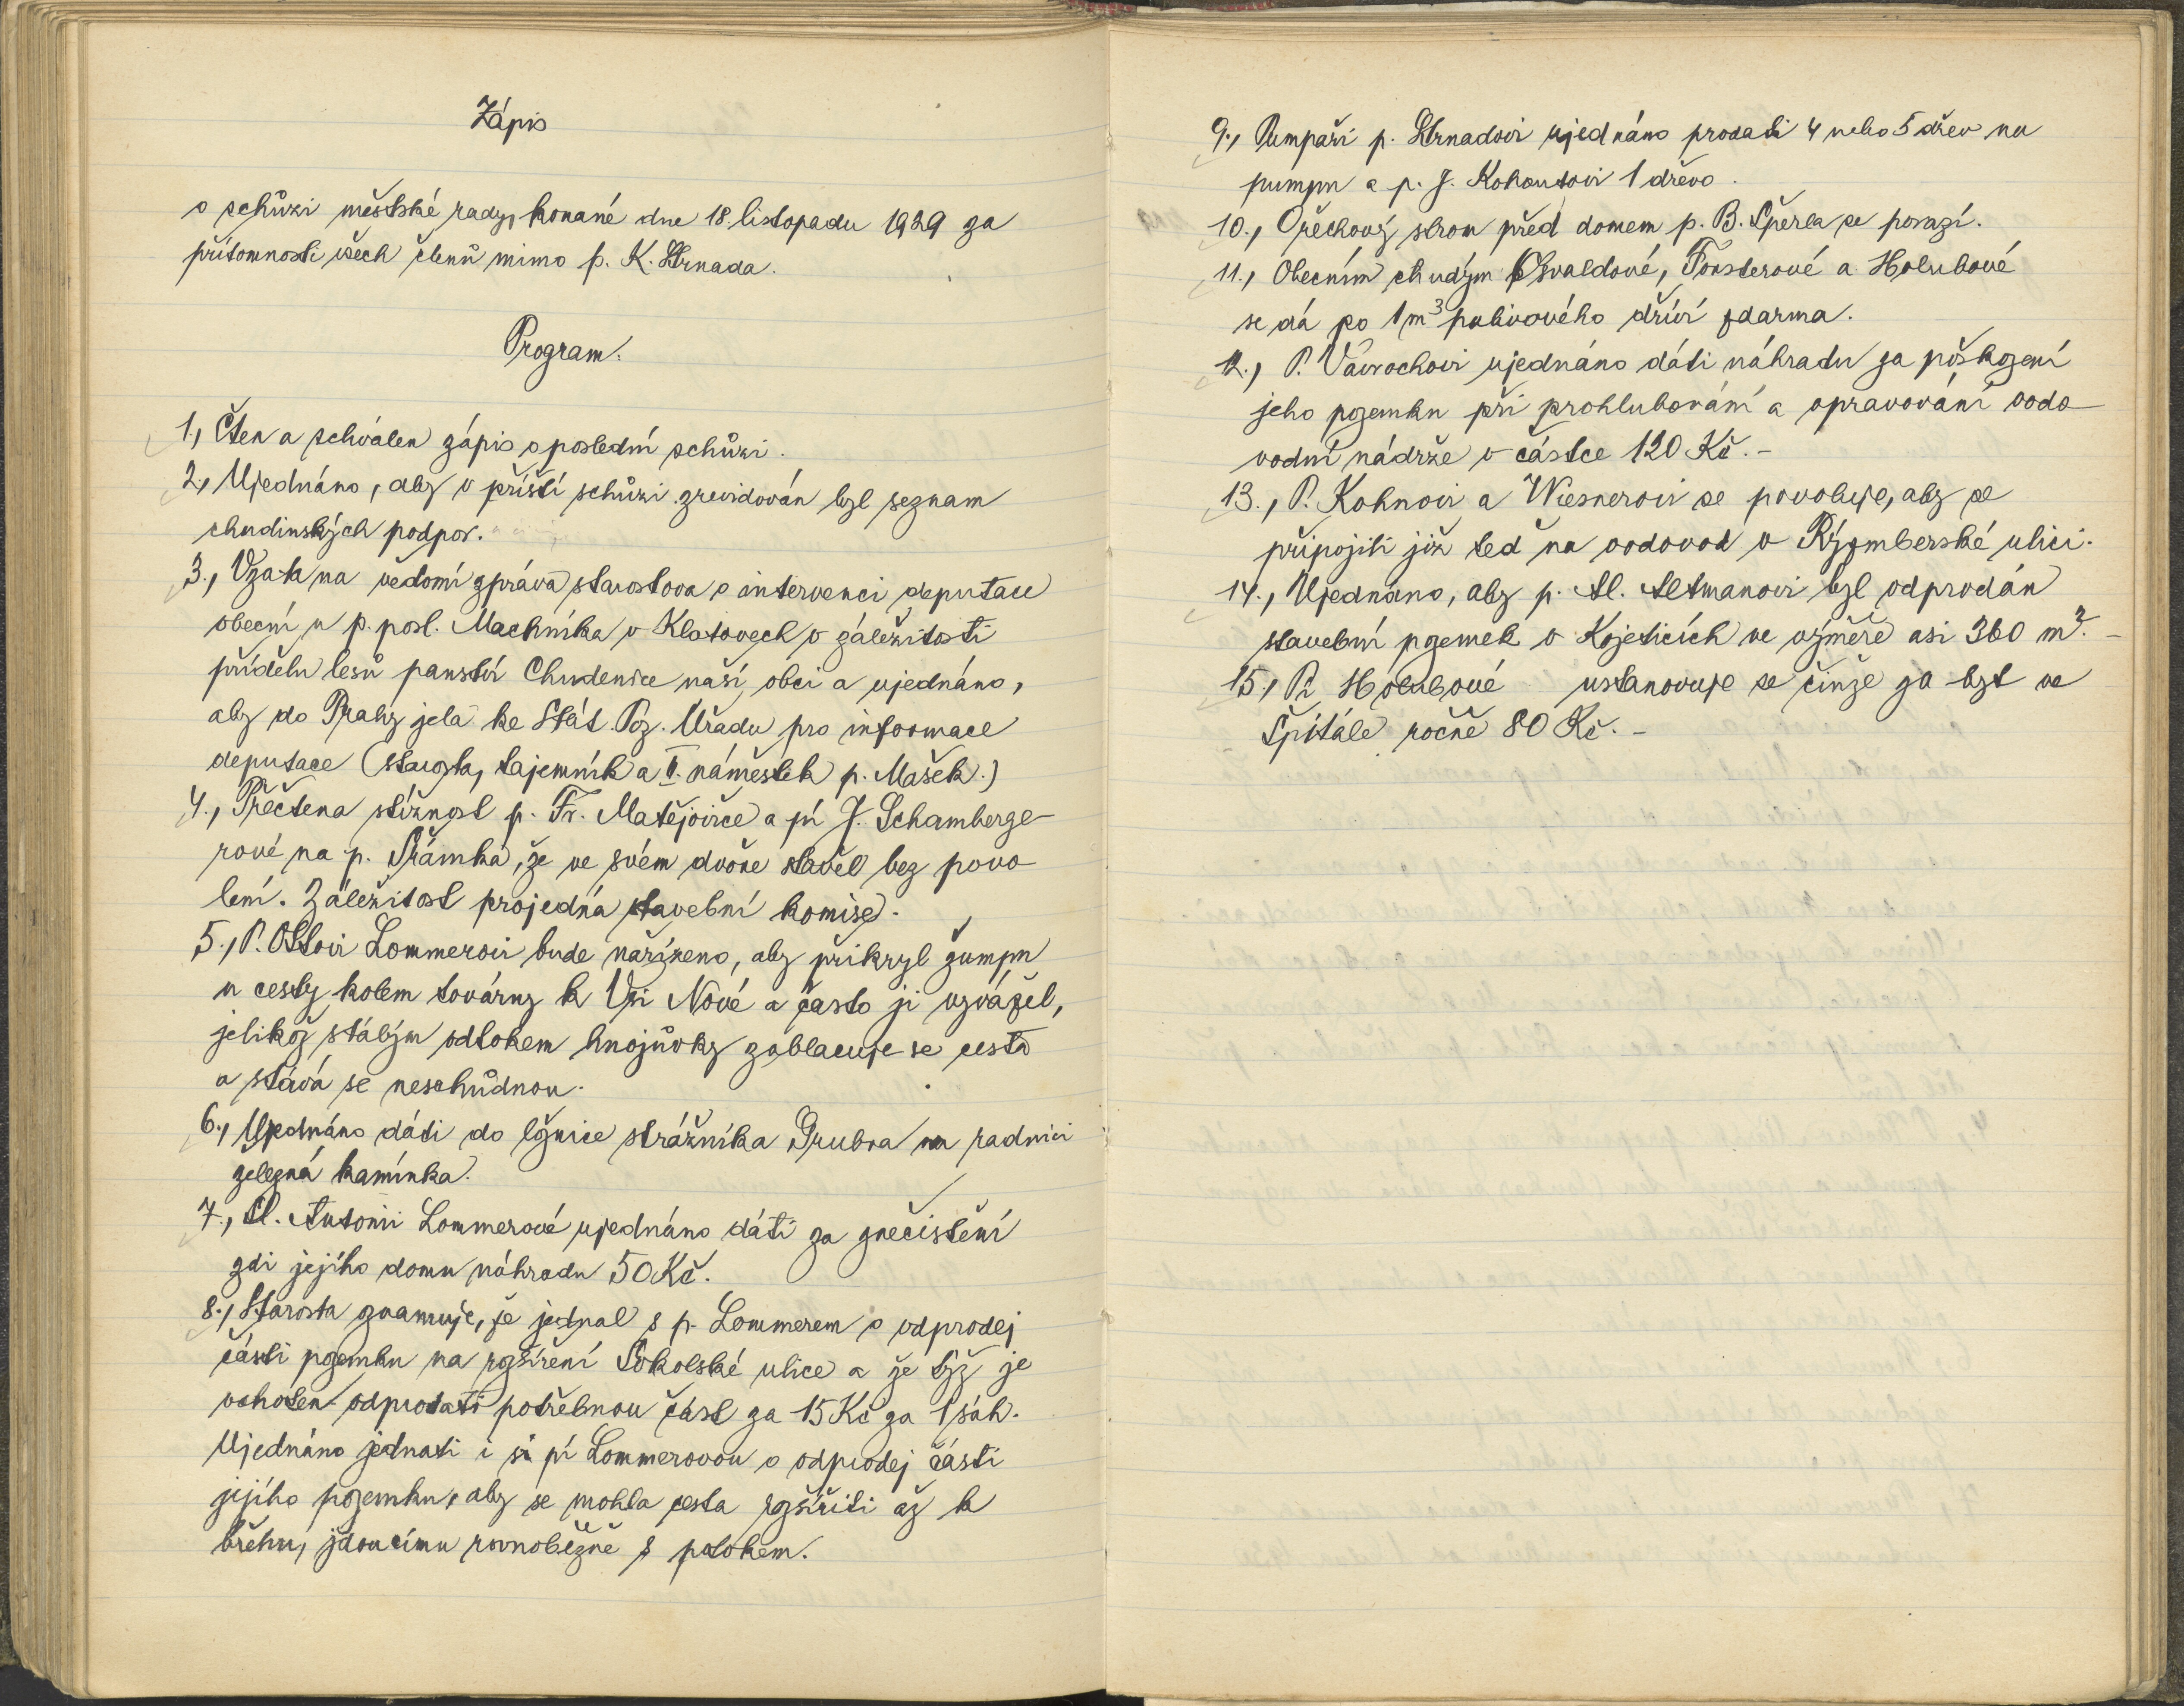 Zápis
o schůzi městské rady, konané dne 18. listopadu 1929 za
přítomnosti všech členů mimo p. K. Strnada.
Program.
1., Čten a schválen zápis o poslední schůzi.
2., Ujednáno, aby v příští schůzi zrevidován byl seznam
chudinských podpor.
3., Vzata na vědomí zpráva starostova o intervenci deputace
obecní u p. posl. Machníka v Klatovech v záležitosti
přídělu lesů panství Chudenice naší obci a ujednáno,
aby do Prahy jela ke Stát. Poz. Úřadu pro informace
deputace (starosta, tajemník a II. náměstek p. Mašek.)
4., Přečtena stížnost p. Fr. Matějovice a pí J. Schamberge-
rové na p. Šrámka, že ve svém dvoře stavěl bez povo-
lení. Záležitost projedná stavební komise.
5., P. Ottovi Lommerovi bude nařízeno, aby přikryl žumpu
u cesty kolem továrny k Vsi Nové a často ji vyvážel,
jelikož stálým odtokem hnojůvky zablacuje se cesta
a stává se neschůdnou.
6., Ujednáno dáti do ložnice strážníka Grubra na radnici
železná kamínka.
7., Sl. Antonii Lommerové ujednáno dáti za znečistění
zdi jejího domu náhradu 50 Kč.
8., Starosta oznamuje, že jednal s p. Lommerem o odprodej
části pozemku na rozšíření Sokolské ulice a že týž je
ochoten odprodati potřebnou část za 15 Kč za 1 sáh.
Ujednáno jednati i s pí Lommerovou o odprodej části
jejího pozemku, aby se mohla cesta rozšířiti až k
břehu, jdoucímu rovnoběžně s potokem.
9., Pumpaři p. Strnadovi ujednáno prodati 4 nebo 5 dřev na
pumpu a p. J. Kohoutovi 1 dřevo.
10., Ořechový strom před domem p. B. Šperla se porazí.
11., Obecním chudým Osvaldové, Forsterové a Holubové
se dá po 1 m³ palivového dříví zdarma.
12., P. Vavrochovi ujednáno dáti náhradu za poškození
jeho pozemku při prohlubování a opravování vodo-
vodní nádrže v částce 120 Kč. -
13., P. Kohnovi a Wiesnerovi se povoluje, aby se
připojili již teď na vodovod v Rýzmberské ulici.
14., Ujednáno, aby p. Al. Altmanovi byl odprodán
stavební pozemek v Kojeticích ve výměře asi 360 m². -
15., Pí Holubové ustanovuje se činže za byt ve
Špitále ročně 80 Kč. -